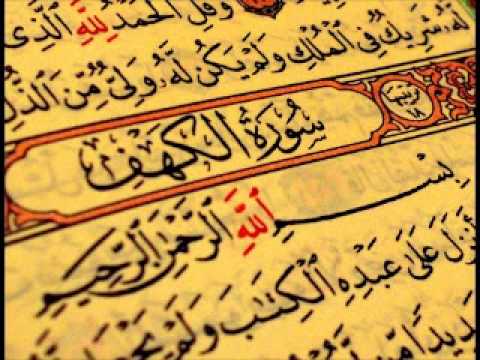 وَقُلِ ٱلْحَمْدُ لِلَّهِ ٱلَّذِى
لَّهُۥ شَرِيكٌ فِى ٱلْمُلْكِ وَلَمْ يَكُن لَّهُۥ وَلِىٌّ مِّنَ ٱلذُّلِّ
سُورَةُ الكَهْفِ
بِسْمِ ٱللَّهِ ٱلرَّحْمَٰنِ ٱلرَّحِيمِ
أَنزَلَ عَلَىٰ عَبْدِهِ ٱلْكِتَٰبَ وَلَمْ يَجْعَل